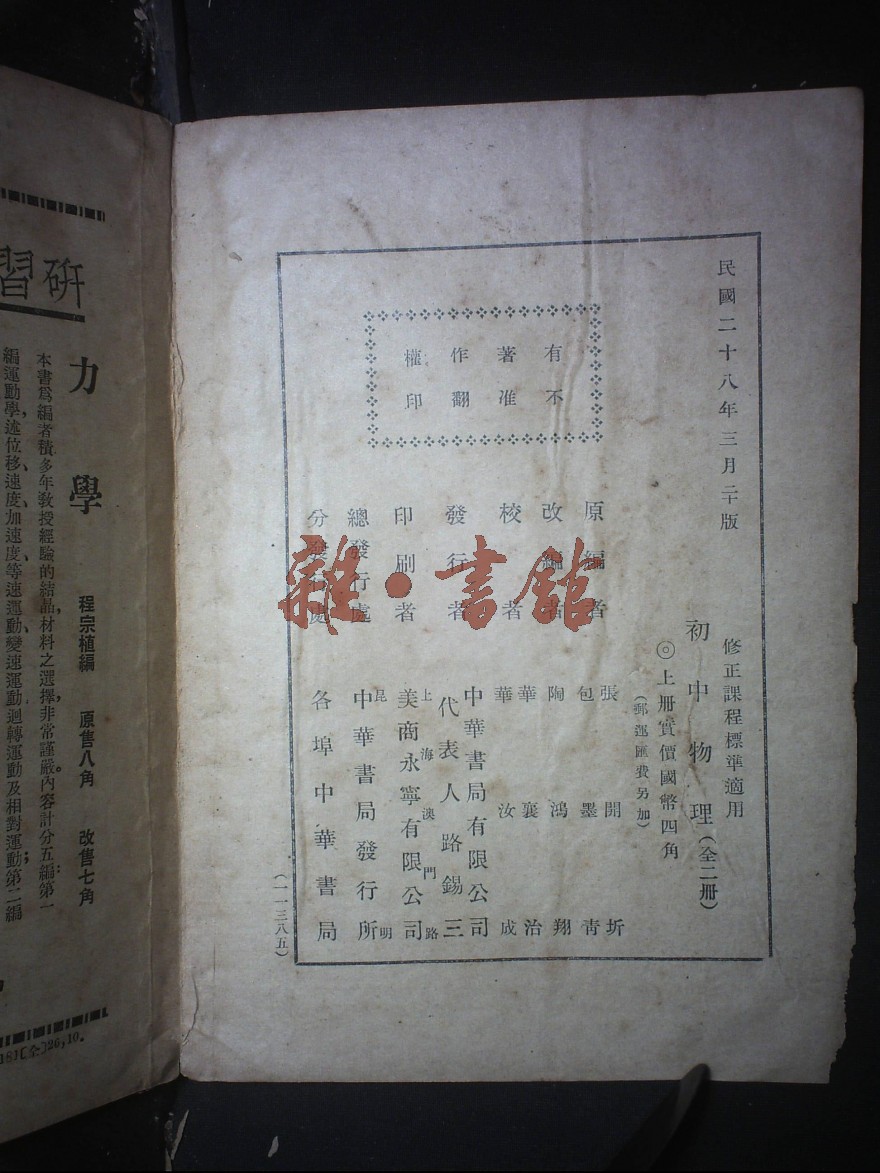 民國二十八年三月二十版
修正課程標準適用
初中物理(全二冊)
◎上冊實價國幣四角
(郵運匯費另加)
有不
著准
作翻
權印
原編者 張開圻
包墨青
改編者 陶鴻翔
校者 華襄治
華汝成
發行者 中華書局有限公司
代表人路錫三
印刷者 上海澳門路
美商永寧有限公司
總發行處 昆明
中華書局發行所
分發行處 各埠中華書局
(一一三八五)
雜·書館
研習
力學
程宗植編 原售八角 改售七角
本書爲編者積多年教授經驗的結晶,材料之選擇,非常謹嚴。內容計分五編:第一
編運動學,述位移、速度、加速度、等速運動、變速運動、迴轉運動及相對運動;第二編